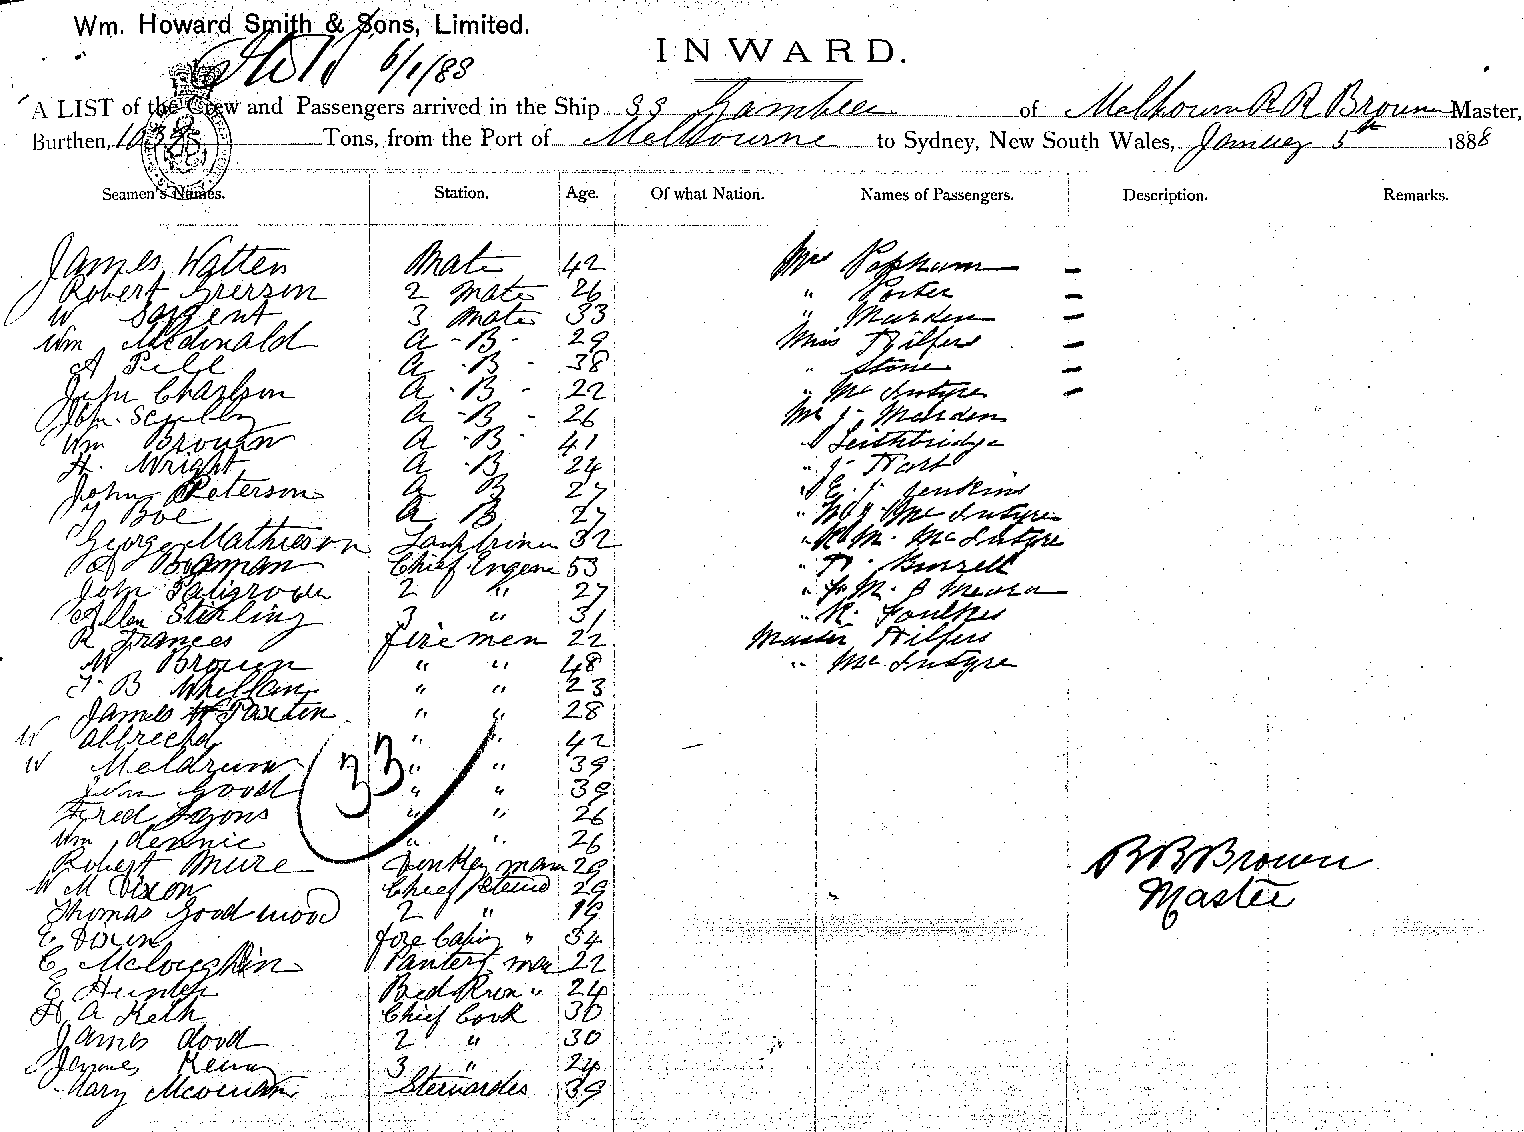 Wm. Howard Smith & Sons, Limited.
6/1/88
INWARD.
A LIST of the Crew and Passengers arrived in the Ship SS Gambier of Melbourn R R Brown Master,
Burthen, Tons, from the Port of Melbourne to Sydney, New South Wales, January 5th 1888
Seamen's Names. Station. Age. Of what Nation. Names of Passengers. Description. Remarks.
James Watten Mate 42 Mrs Popham -
Robert Grerson 2 Mate 26 " Porter -
W Sargent 3 Mate 33 " Marden -
Wm McDinald A - B - 29 Miss Hilfers -
A Pill A - B - 38 " Stone -
John Charlson A - B - 22 " McIntyre -
John A - B - 26 Mr J Marden
Wm Brown A - B - 41 " Leithbridge
H. Wright A - B 24 " J Hart
John Peterson A B 27 " E. J. Jenkins
Boe A B 27 " McIntyre
George Mathieson Lamptrimer 32 " R. M. McIntyre
Bowman Chief Engene 53 " Burrell
John 2 " 27 " M.
Allen Stirling 3 " 31 " R. Foulkes
R Frances fire men 22 Master Hilfers
W Brown " " 48 " McIntyre
F. B Whillan " " 23
James W Paxton " " 28
W Albrecht " " 42
W Meldrum " " 39
33
John Good " " 39
Fred Lyons " " 26
Wm Rennie " " 26
Robert Muire Donkey man 29
R R Brown
W M Dixon Chief Steud 29
Master
Thomas Goodwood 2 " 19
E Dixon fore Cabin " 34
C McLoughlin Pantery men 22
E Hunter Bed Room " 24
H A Keth Chief Cook 30
James Dodd 2 " 30
James Kenny 3 " 24
Mary Stewardes 39